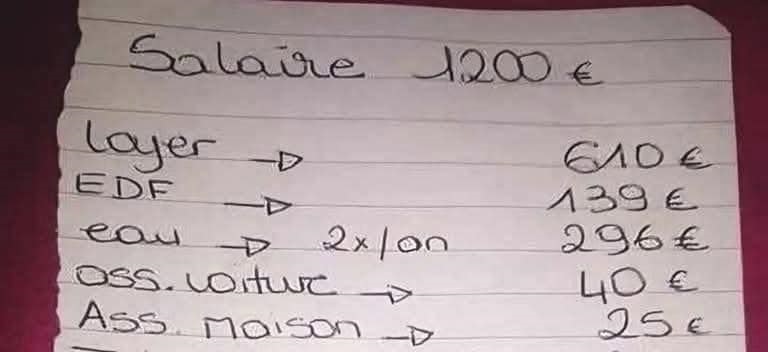 Salaire 1200 €
Loyer → 610 €
EDF → 139 €
eau → 2x/an 296 €
ass. voiture → 40 €
Ass. Maison → 25 €